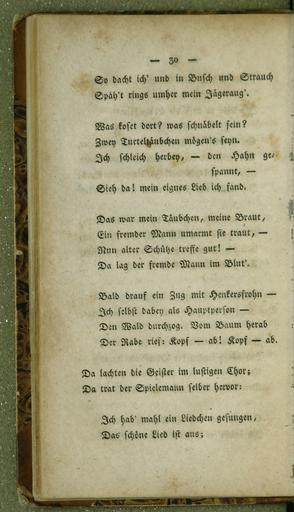 — 30 —
So dacht ich' und in Busch und Strauch
Späh't rings umher mein Jägeraug'.
Was koset dort? was schnäbelt fein?
Zwey Turteltäubchen mögen's seyn.
Ich schleich herbey, — den Hahn ge-
spannt, —
Sieh da! mein eignes Lieb ich fand.
Das war mein Täubchen, meine Braut,
Ein fremder Mann umarmt sie traut, —
Nun alter Schütze treffe gut! —
Da lag der fremde Mann im Blut'.
Bald drauf ein Zug mit Henkersfrohn —
Ich selbst dabey als Hauptperson —
Den Wald durchzog. Vom Baum herab
Der Rabe rief: Kopf — ab! Kopf — ab.
Da lachten die Geister im lustigen Chor;
Da trat der Spielemann selber hervor:
Ich hab' mahl ein Liedchen gesungen,
Das schöne Lied ist aus;